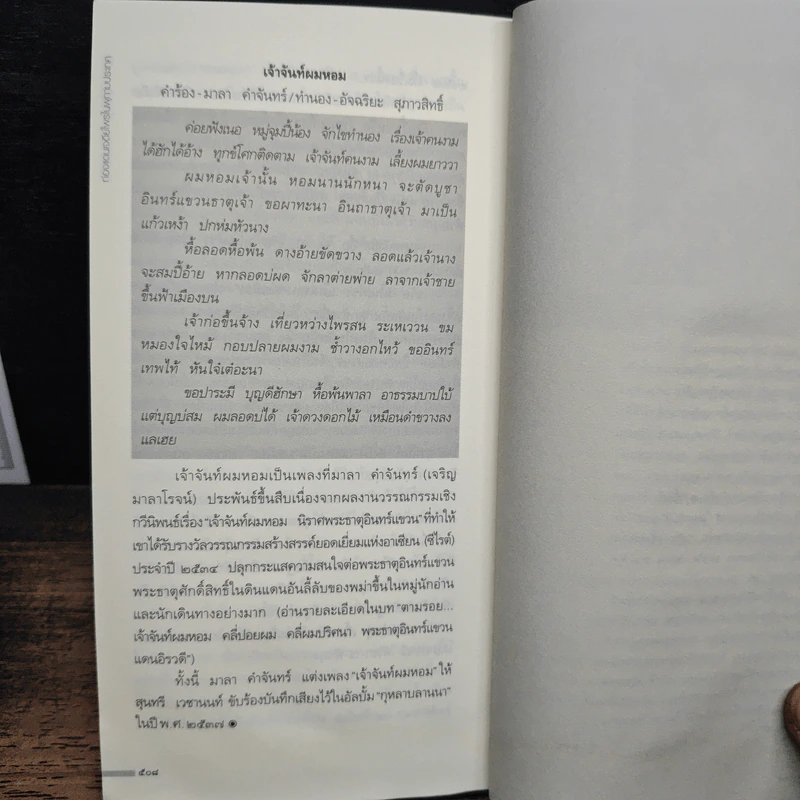 เจ้าจันท์ผมหอม
คำร้อง-มาลา คำจันทร์/ทำนอง-อัจฉริยะ สุภาวสิทธิ์
ค่อยฟังเนอ หมู่จุมปี้น้อง จักไขทำนอง เรื่องเจ้าคนงาม
ได้ฮักได้อ้าง ทุกข์โศกติดตาม เจ้าจันท์คนงาม เลี้ยงผมยาววา
ผมหอมเจ้านั้น หอมนานนักหนา จะตัดบูชา
อินทร์แขวนธาตุเจ้า ขอผาทะนา อินถาธาตุเจ้า มาเป็น
แก้วเหง้า ปกห่มหัวนาง
หื้อลอดหื้อพ้น ดางอ้ายขัดขวาง ลอดแล้วเจ้านาง
จะสมปี้อ้าย หากลอดบ่ผด จักลาต่ายพ่าย ลาจากเจ้าชาย
ขึ้นฟ้าเมืองบน
เจ้าก่อขึ้นจ้าง เที่ยวหว่างไพรสน ระเหเววน ขม
หมองใจไหม้ กอบปลายผมงาม ซ้ำวางอกไหว้ ขออินทร์
เทพไท้ หันใจ๋เต๋อะนา
ขอปาระมี บุญดีฮักษา หื้อพ้นพาลา อาธรรมบาปใบ้
แต่บุญบ่สม ผมลอดบ่ได้ เจ้าดวงดอกไม้ เหมือนดำขวางลง
แลเฮย
เจ้าจันท์ผมหอมเป็นเพลงที่มาลา คำจันทร์ (เจริญ
มาลาโรจน์) ประพันธ์ขึ้นสืบเนื่องจากผลงานวรรณกรรมเชิง
กวีนิพนธ์เรื่อง “เจ้าจันท์ผมหอม นิราศพระธาตุอินทร์แขวน” ที่ทำให้
เขาได้รับรางวัลวรรณกรรมสร้างสรรค์ยอดเยี่ยมแห่งอาเซียน (ซีไรต์)
ประจำปี ๒๕๓๔ ปลุกกระแสความสนใจต่อพระธาตุอินทร์แขวน
พระธาตุศักดิ์สิทธิ์ในดินแดนอันลี้ลับของพม่าขึ้นในหมู่นักอ่าน
และนักเดินทางอย่างมาก (อ่านรายละเอียดในบท “ตามรอย...
เจ้าจันท์ผมหอม คลี่ปอยผม คลี่ผมปริศนา พระธาตุอินทร์แขวน
แดนอิรวดี”)
ทั้งนี้ มาลา คำจันทร์ แต่งเพลง “เจ้าจันท์ผมหอม” ให้
สุนทรี เวชานนท์ ขับร้องบันทึกเสียงไว้ในอัลบั้ม “กุหลาบลานนา”
ในปี พ.ศ. ๒๕๓๗
๕๐๘